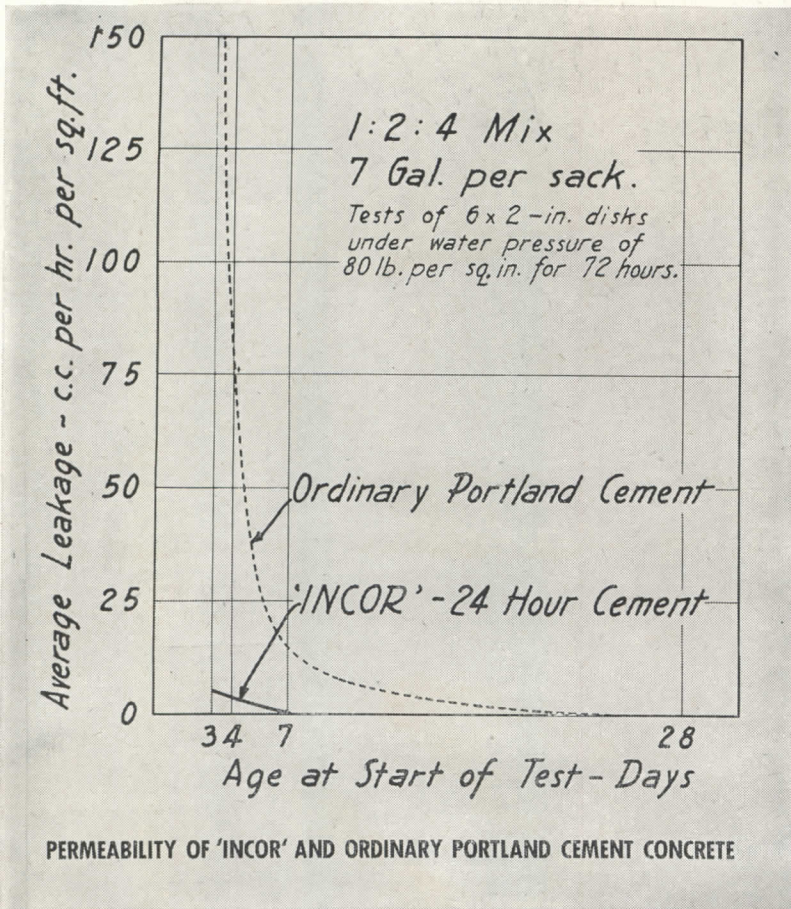 150
125
100
75
50
25
0
Average Leakage - c.c. per hr. per sq.ft.
1:2:4 Mix
7 Gal. per sack.
Tests of 6 x 2-in. disks
under water pressure of
80 lb. per sq. in. for 72 hours.
Ordinary Portland Cement
'INCOR' - 24 Hour Cement
3 4 7 28
Age at Start of Test - Days
PERMEABILITY OF 'INCOR' AND ORDINARY PORTLAND CEMENT CONCRETE